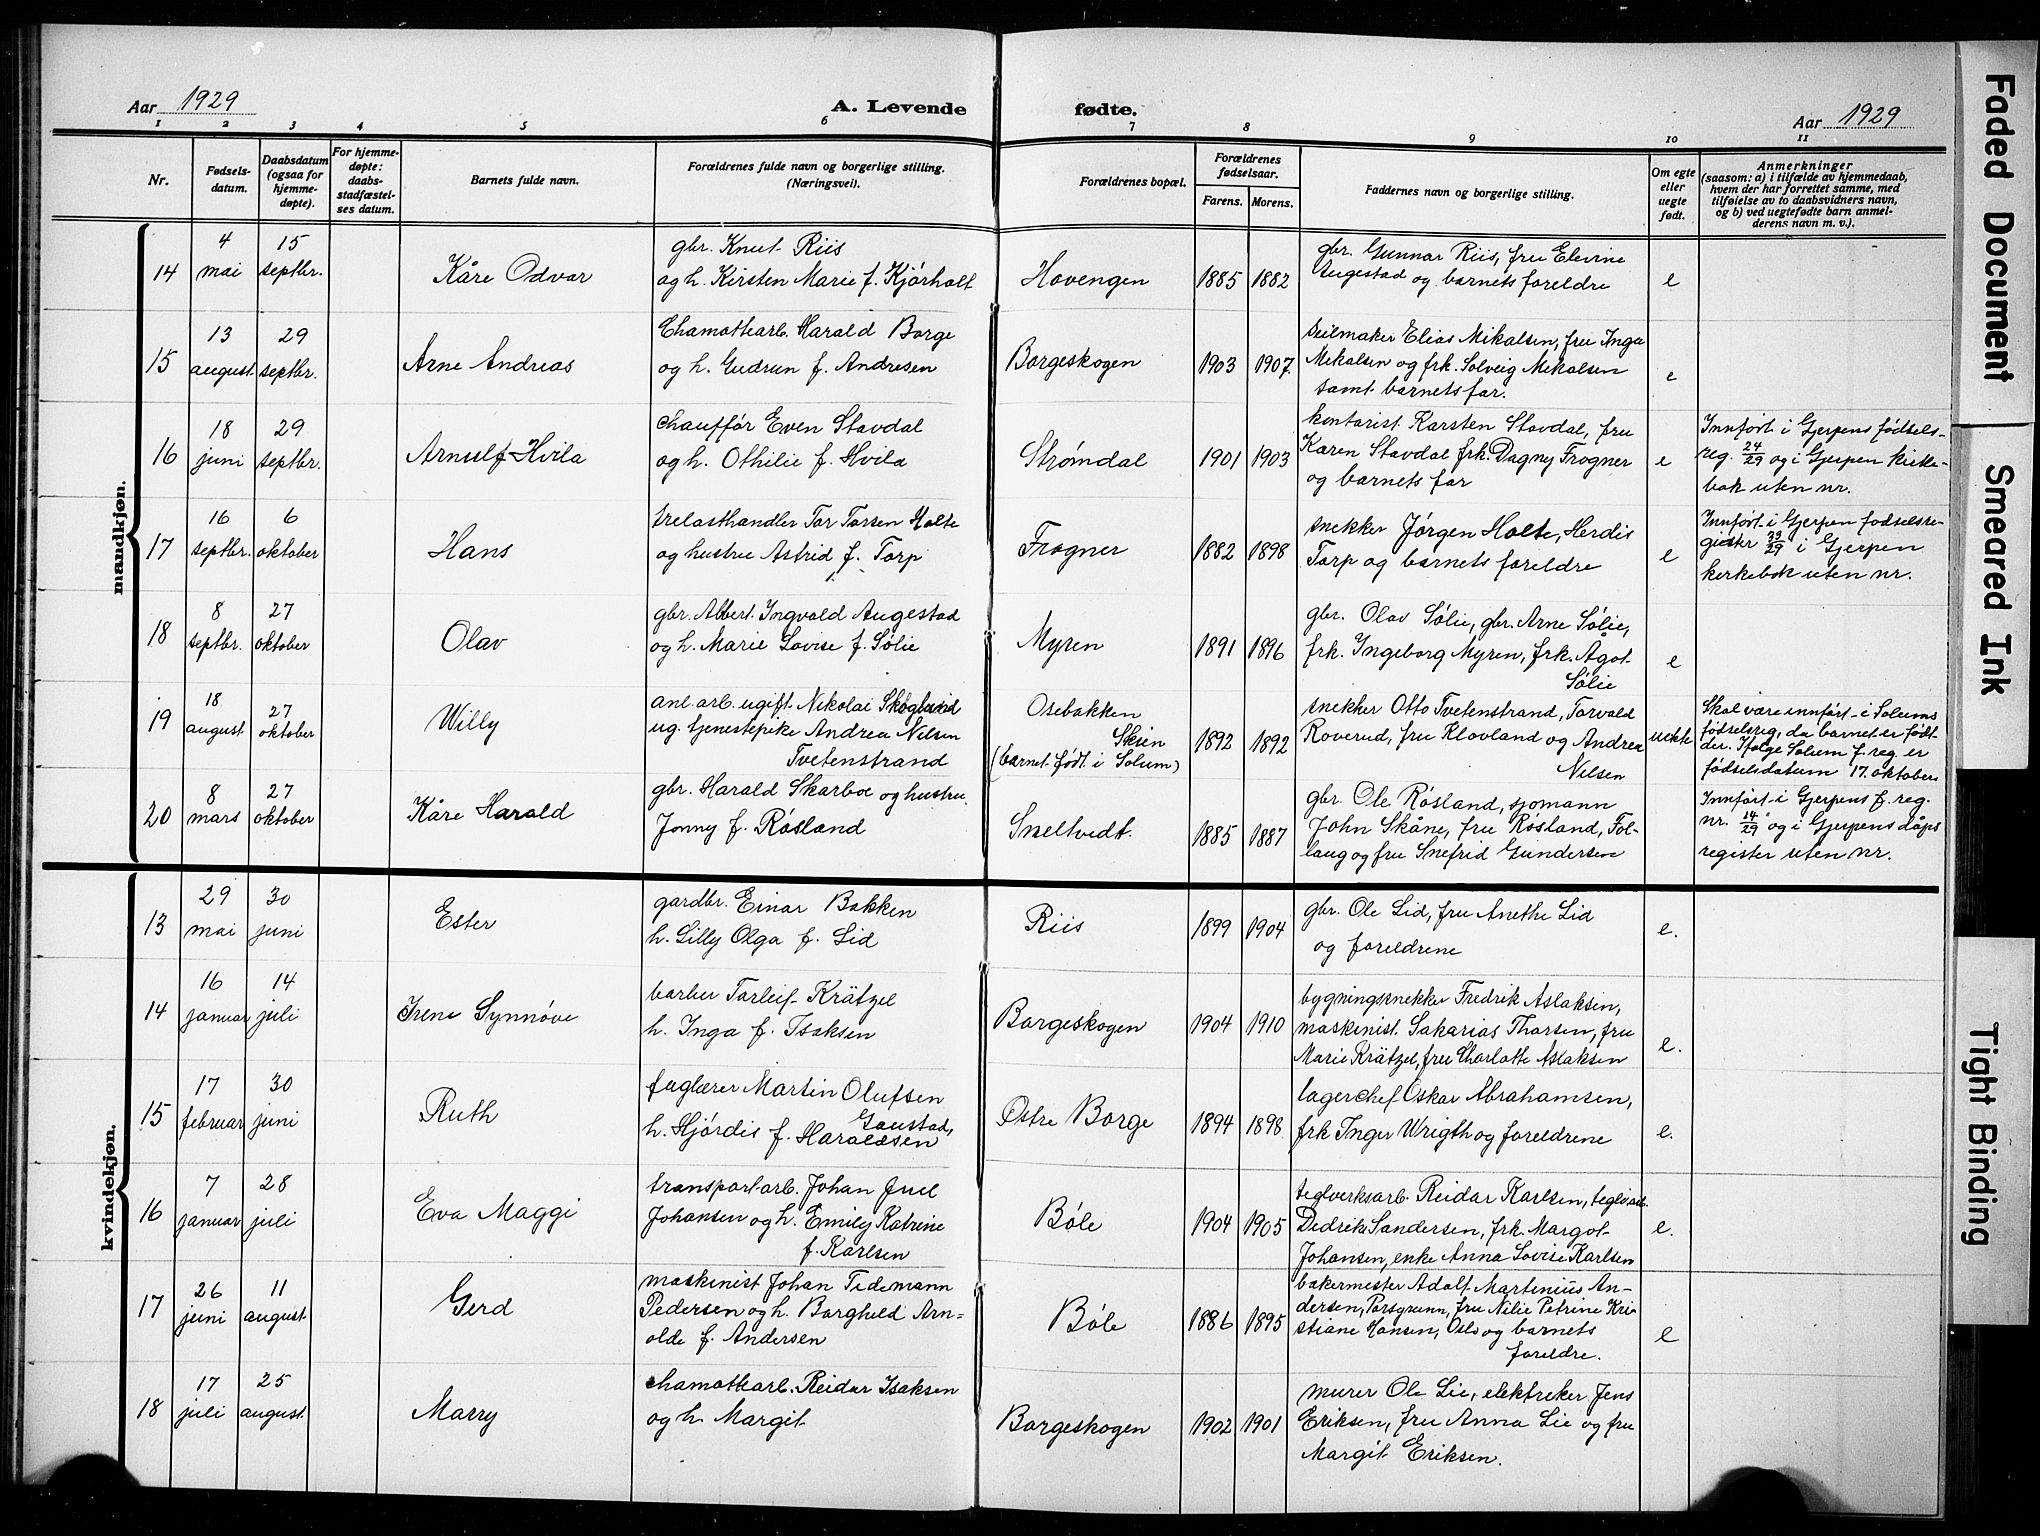 Aar 1929
A. Levende fødte.
Aar 1929
1 2 3 4 5 6 7 8 9 10 11
Nr.
Fødsels-
datum.
Daabsdatum
(ogsaa for
hjemme-
døpte).
For hjemme-
døpte:
daabs-
stadfæstel-
ses datum.
Barnets fulde navn.
Forældrenes fulde navn og borgerlige stilling.
(Næringsvei).
Forældrenes bopæl.
Forældrenes
fødselsaar.
Farens. Morens.
Faddernes navn og borgerlige stilling.
Om egte
eller
uegte
født.
Anmerkninger
(saasom: a) i tilfælde av hjemmedaab,
hvem der har forrettet samme, med
tilføielse av to daabsvidners navn,
og b) ved uegtefødte barn anmel-
derens navn m. v.).
mandkjøn.
14
4
mai
15
septbr.
Kåre Odvar
gbr. Knut Riis
og h. Kirsten Marie f. Kjørholt
Hovengen
1885 1882
gbr. Gunnar Riis, fru Elevine
Augestad og barnets foreldre
e
15
13
august
29
septbr.
Arne Andreas
Chamottearb. Harald Borge
og h. Gudrun f. Andresen
Borgeskogen
1903 1907.
seilmaker Elias Mikalsen, fru Inga
Mikalsen og frk. Solveig Mikalsen
samt barnets far.
e
16
18
juni
29
septbr.
Arnulf Hvila
chauffór Even Stavdal
og h. Othilie f. Hvila
Strømdal
1901 1903
kontorist Karsten Stavdal, fru
Karen Stavdal frk. Dagny Frogner
og barnets far
e
Innført i Gjerpens fødsels-
reg. 24/29 og i Gjerpen kirke-
bok uten nr.
17
16
septbr.
6
oktober
Hans
trelasthandler Tor Torsen Holte
og hustru Astrid f. Torp
Frogner
1882 1898
snekker Jørgen Holte, Herdis
Torp og barnets foreldre
e
Innført i Gjerpen fodselsre-
gister 39/29 i Gjerpen
kerkebok uten nr.
18
8
septbr.
27
oktober
Olav
gbr. Albert Ingvald Augestad
og h. Marie Lovise f. Sólie
Myren
1891 1896
gbr. Olav Sólie, gbr. Arne Sólie,
frk. Ingeborg Myren, frk. Ågot
Sólie
e
19
18
august
27
oktober
Willy
anl. arb. ugift Nikolai Skoglund
ug. tjenestepike Andrea Nilsen
Tvetenstrand
Osebakken
Skien
(barnet født i Solum)
1892 1892
snekker Otto Tvetenstrand, Torvald
Roverud, fru Klovland og Andrea
Nilsen
uekte
Skal være innført i Solums
fødselsreg, da barnet er født
der. Ifølge Solum f. reg. er
fødselsdatum 17. oktober.
20
8
mars
27
oktober
Kåre Harald
gbr. Harald Skarbo og hustru
Jonny f. Røsland
Sneltvedt.
1885 1887
gbr. Ole Røsland, sjomann
John Skåne, fru Røsland, Tol-
laug og fru Snefrid Gundersen
Innført i Gjerpens f. reg.
nr. 14/29 og i Gjerpens dåps
register uten nr.
kvindekjøn.
13
29
mai
30
juni
Ester
gardbr. Einar Bakken
h. Lilly Olga f. Lid
Riis
1899 1904
gbr. Ole Lid, fru Anethe Lid
og foreldrene
e.
14
16
januar
14
juli
Irene Synnøve
barber Torleif Krätzel
h. Inga f. Isaksen
Borgeskogen
1904 1910
bygningsnekker Fredrik Aslaksen,
maskinist Sakarias Thorsen, fru
Marie Krätzel, fru Charlotte Aslaksen
e.
15
17
februar
30
juni
Ruth
fuglærer Martin Olufsen
Gaustad,
h. Hjórdis f. Haraldsen
Østre Borge
1894 1898
lagerchef Oskar Abrahamsen,
frk Inger Wrigth og foreldrene
e.
16
7
januar
28
juli
Eva Maggi
transportarb. Johan Juel
Johansen og h. Emily Katrine
f. Karlsen
Bøle
1904 1905
teglverksarb. Reidar Karlsen,
Didrik Sandersen, frk. Margot
Johansen, enke Anna Lovise Karlsen
e.
17
26
juni
11
august
Gerd
maskinist Johan Tidemann
Pedersen og h. Borghild Arn-
olde f. Andersen
Bøle
1886 1895
bakermester Adolf Martenius An-
dersen, Porsgrunn, fru Nilie Petrine Kri-
stiane Hansen, Oslo og barnets
foreldre.
e
18
17
juli
25
august
Marry
chamottearb. Reidar Isaksen
og h. Margit
Borgeskogen
1902 1901
murer Ole Lie, elektreker Jens
Eriksen, fru Anna Lie og fru
Margit Eriksen.
Faded Document
Smeared Ink
Tight Binding